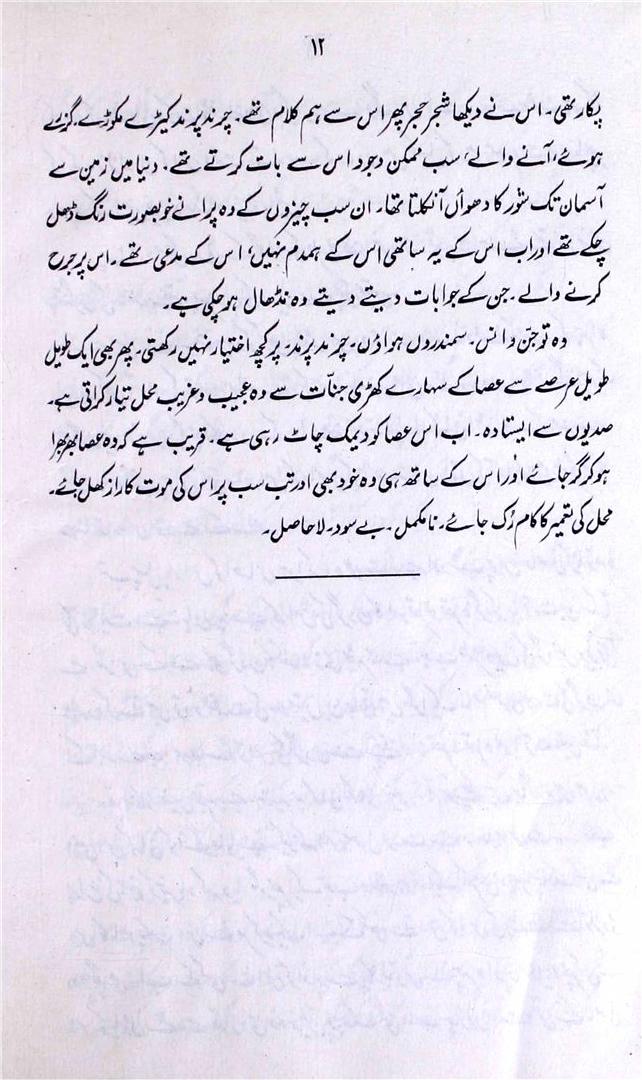 ۱۲
پکار تھی۔ اس نے دیکھا شجر حجر پھر اس سے ہم کلام تھے۔ چرند پرند کیڑے مکوڑے گزرے
ہوئے، آنے والے، سب ممکن وجود اس سے بات کرتے تھے۔ دنیا میں زمین سے
آسمان تک شور کا دھواں آ نکلتا تھا۔ ان سب چیزوں کے وہ پرانے خوبصورت رنگ ڈھل
چکے تھے اور اب اس کے یہ ساتھی اس کے ہمدم نہیں، اس کے مدعی تھے۔ اس پر جرح
کرنے والے۔ جن کے جوابات دیتے دیتے وہ نڈھال ہو چکی ہے۔
وہ تو جن و انس۔ سمندروں ہواؤں۔ چرند پرند۔ پر کچھ اختیار نہیں رکھتی۔ پھر بھی ایک طویل
طویل عرصے سے عصا کے سہارے کھڑی جنّات سے وہ عجیب و غریب محل تیار کراتی ہے۔
صدیوں سے ایستادہ۔ اب اس عصا کو دیمک چاٹ رہی ہے۔ قریب ہے کہ وہ عصا بھربھرا
ہو کر گر جائے اور اس کے ساتھ ہی وہ خود بھی اور تب سب پر اس کی موت کا راز کھل جائے۔
محل کی تعمیر کا کام رُک جائے۔ نامکمل۔ بے سود۔ لاحاصل۔